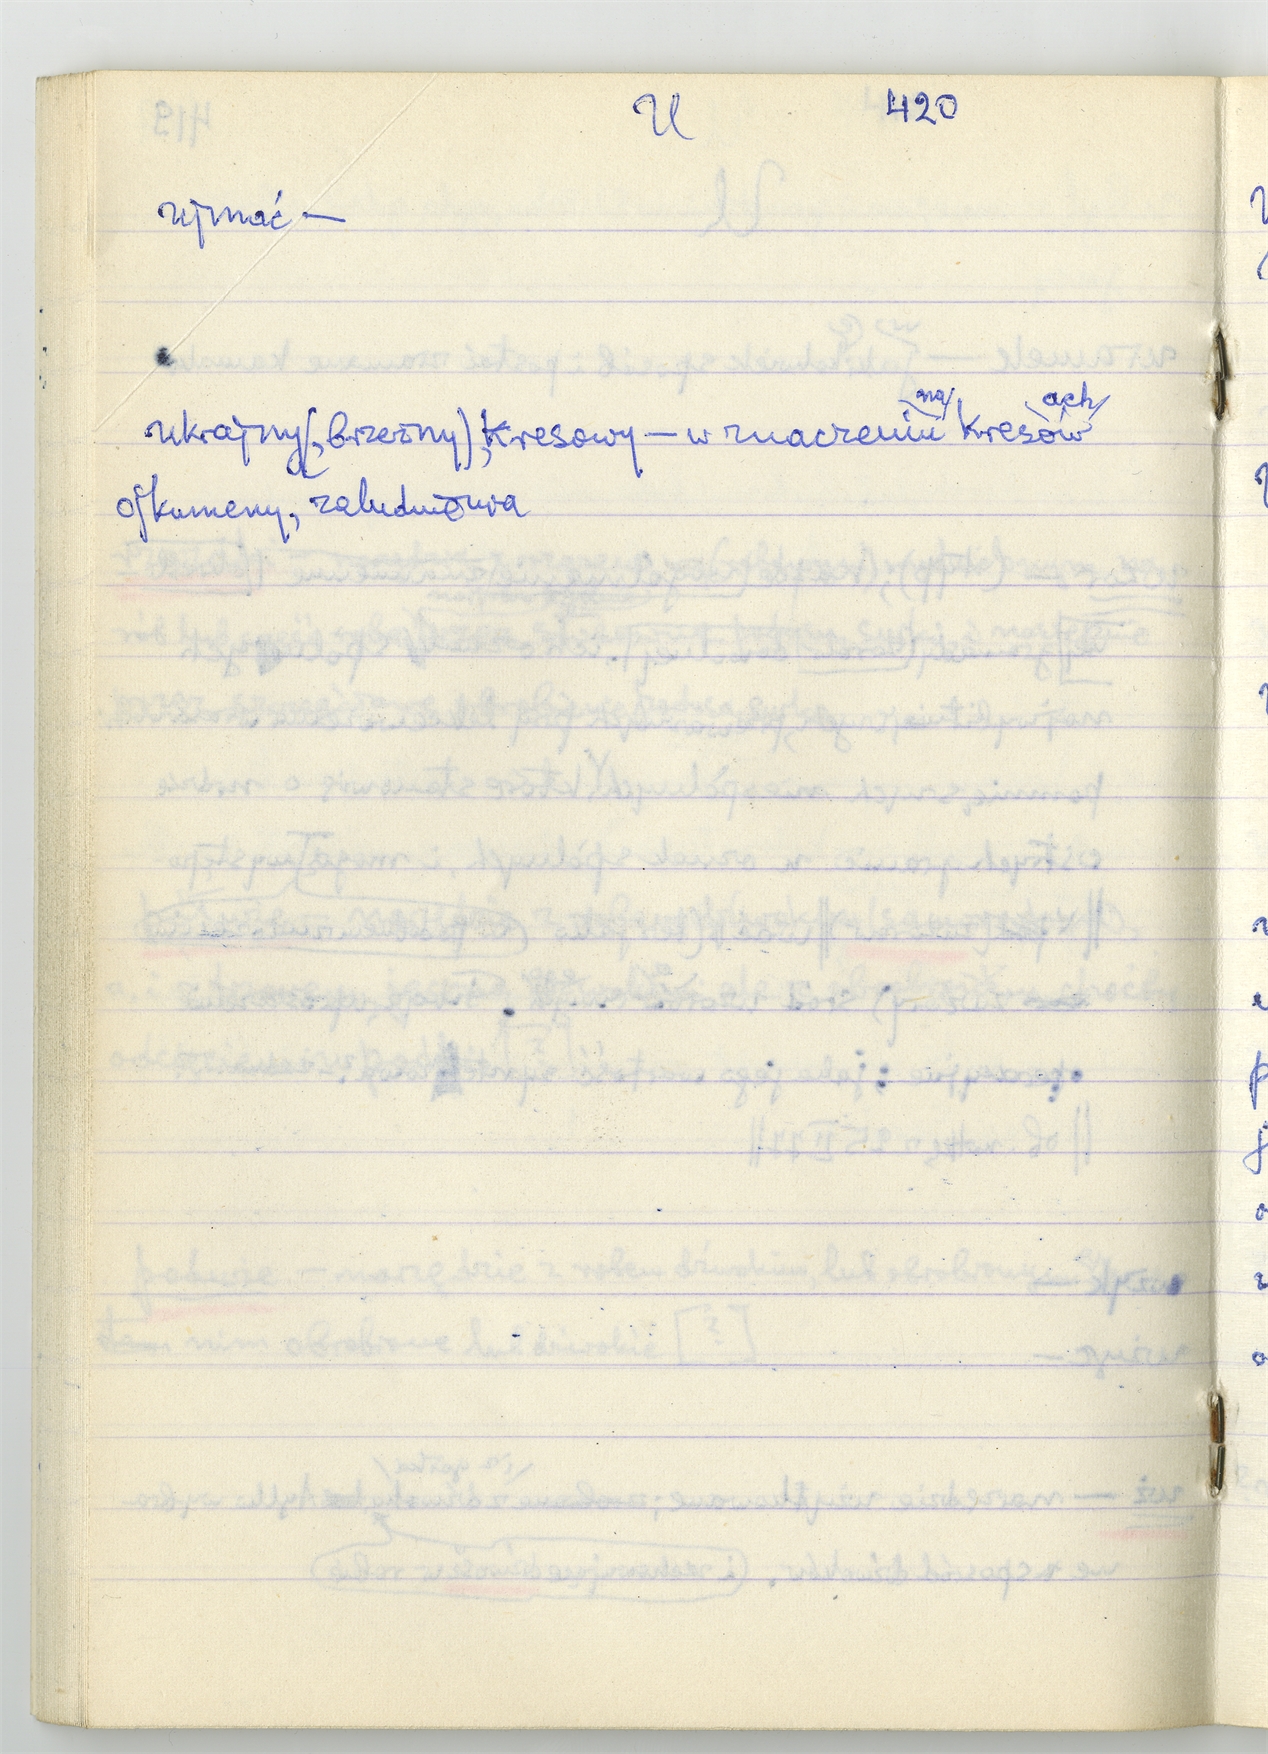 U 420
ujmać —
ukrajny(, brzeżny), kresowy — w znaczeniu \na/ kresów \ach/
ojkumeny, zaludnienia